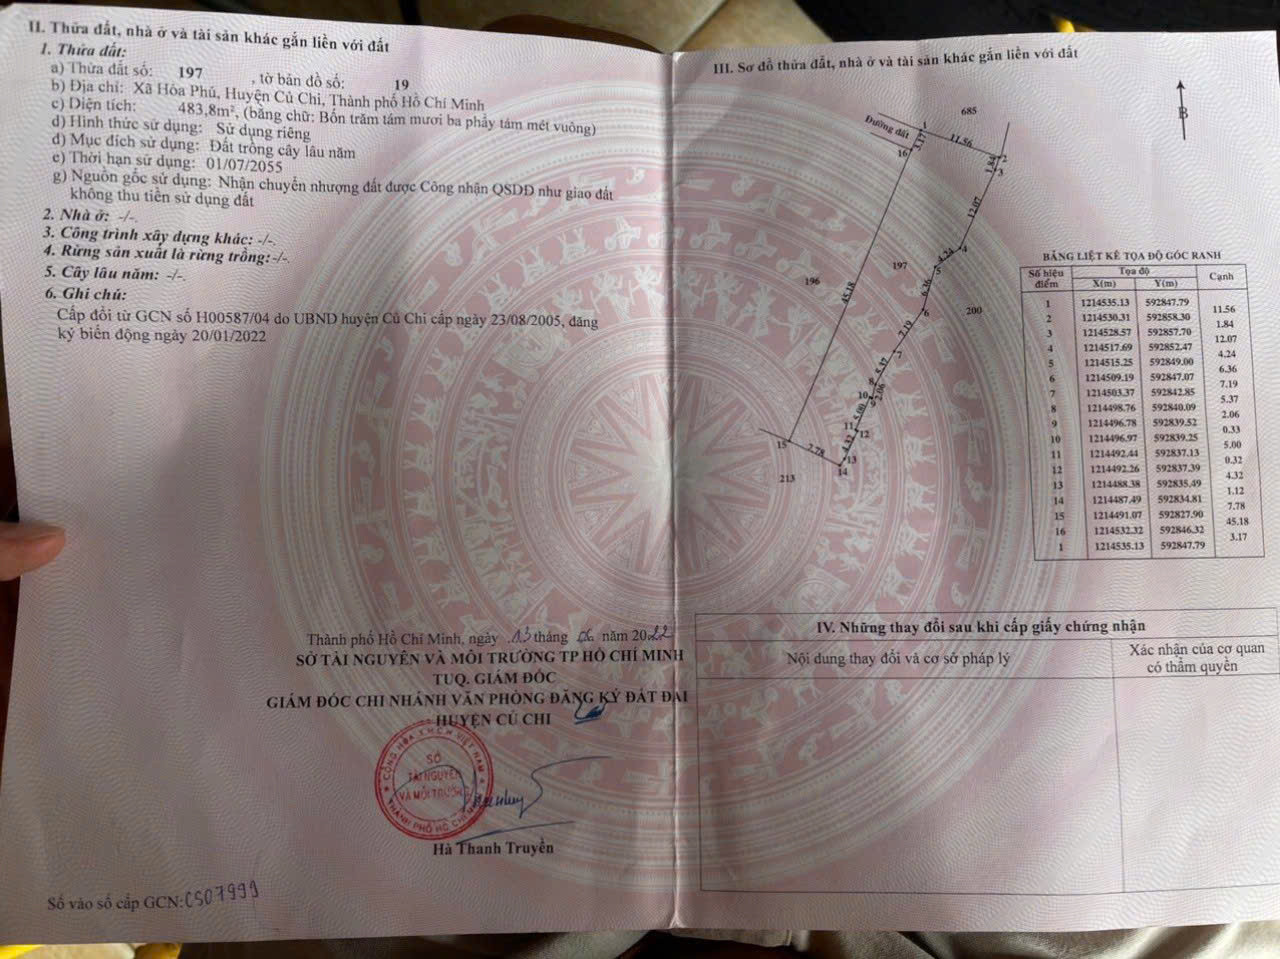 II. Thửa đất, nhà ở và tài sản khác gắn liền với đất
1. Thửa đất:
a) Thửa đất số: 197, tờ bản đồ số: 19
b) Địa chỉ: Xã Hòa Phú, Huyện Củ Chi, Thành phố Hồ Chí Minh
c) Diện tích: 483,8m², (bằng chữ: Bốn trăm tám mươi ba phẩy tám mét vuông)
d) Hình thức sử dụng: Sử dụng riêng
đ) Mục đích sử dụng: Đất trồng cây lâu năm
e) Thời hạn sử dụng: 01/07/2055
g) Nguồn gốc sử dụng: Nhận chuyển nhượng đất được Công nhận QSDĐ như giao đất
không thu tiền sử dụng đất
2. Nhà ở: -/-.
3. Công trình xây dựng khác: -/-.
4. Rừng sản xuất là rừng trồng: -/-.
5. Cây lâu năm: -/-.
6. Ghi chú:
Cấp đổi từ GCN số H00587/04 do UBND huyện Củ Chi cấp ngày 23/08/2005, đăng
ký biến động ngày 20/01/2022
Thành phố Hồ Chí Minh, ngày 13 tháng 06 năm 2022
SỞ TÀI NGUYÊN VÀ MÔI TRƯỜNG TP HỒ CHÍ MINH
TUQ. GIÁM ĐỐC
GIÁM ĐỐC CHI NHÁNH VĂN PHÒNG ĐĂNG KÝ ĐẤT ĐAI
HUYỆN CỦ CHI
CỘNG HÒA X.H.C.N VIỆT NAM
SỞ
TÀI NGUYÊN
VÀ MÔI TRƯỜNG
THÀNH PHỐ HỒ CHÍ MINH
Hà Thanh Truyền
Số vào sổ cấp GCN: CS07999
III. Sơ đồ thửa đất, nhà ở và tài sản khác gắn liền với đất
B
685
Đường đất
1
3.17
11.56
2
16
1.84
3
12.07
4
4.24
197
5
196
45.18
6.36
6
200
7.19
7
5.37
8
2.06
10
9
5.00
11
12
4.32
15
7.78
13
14
213
BẢNG LIỆT KÊ TỌA ĐỘ GÓC RANH
Số hiệu điểm Tọa độ Cạnh
X(m) Y(m)
1 1214535.13 592847.79
11.56
2 1214530.31 592858.30
1.84
3 1214528.57 592857.70
12.07
4 1214517.69 592852.47
4.24
5 1214515.25 592849.00
6.36
6 1214509.19 592847.07
7.19
7 1214503.37 592842.85
5.37
8 1214498.76 592840.09
2.06
9 1214496.78 592839.52
0.33
10 1214496.97 592839.25
5.00
11 1214492.44 592837.13
0.32
12 1214492.26 592837.39
4.32
13 1214488.38 592835.49
1.12
14 1214487.49 592834.81
7.78
15 1214491.07 592827.90
45.18
16 1214532.32 592846.32
3.17
1 1214535.13 592847.79
IV. Những thay đổi sau khi cấp giấy chứng nhận
Nội dung thay đổi và cơ sở pháp lý
Xác nhận của cơ quan
có thẩm quyền